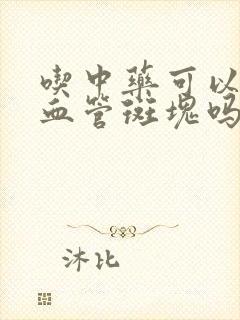 喫中藥可以
血管斑塊嗎
沐比